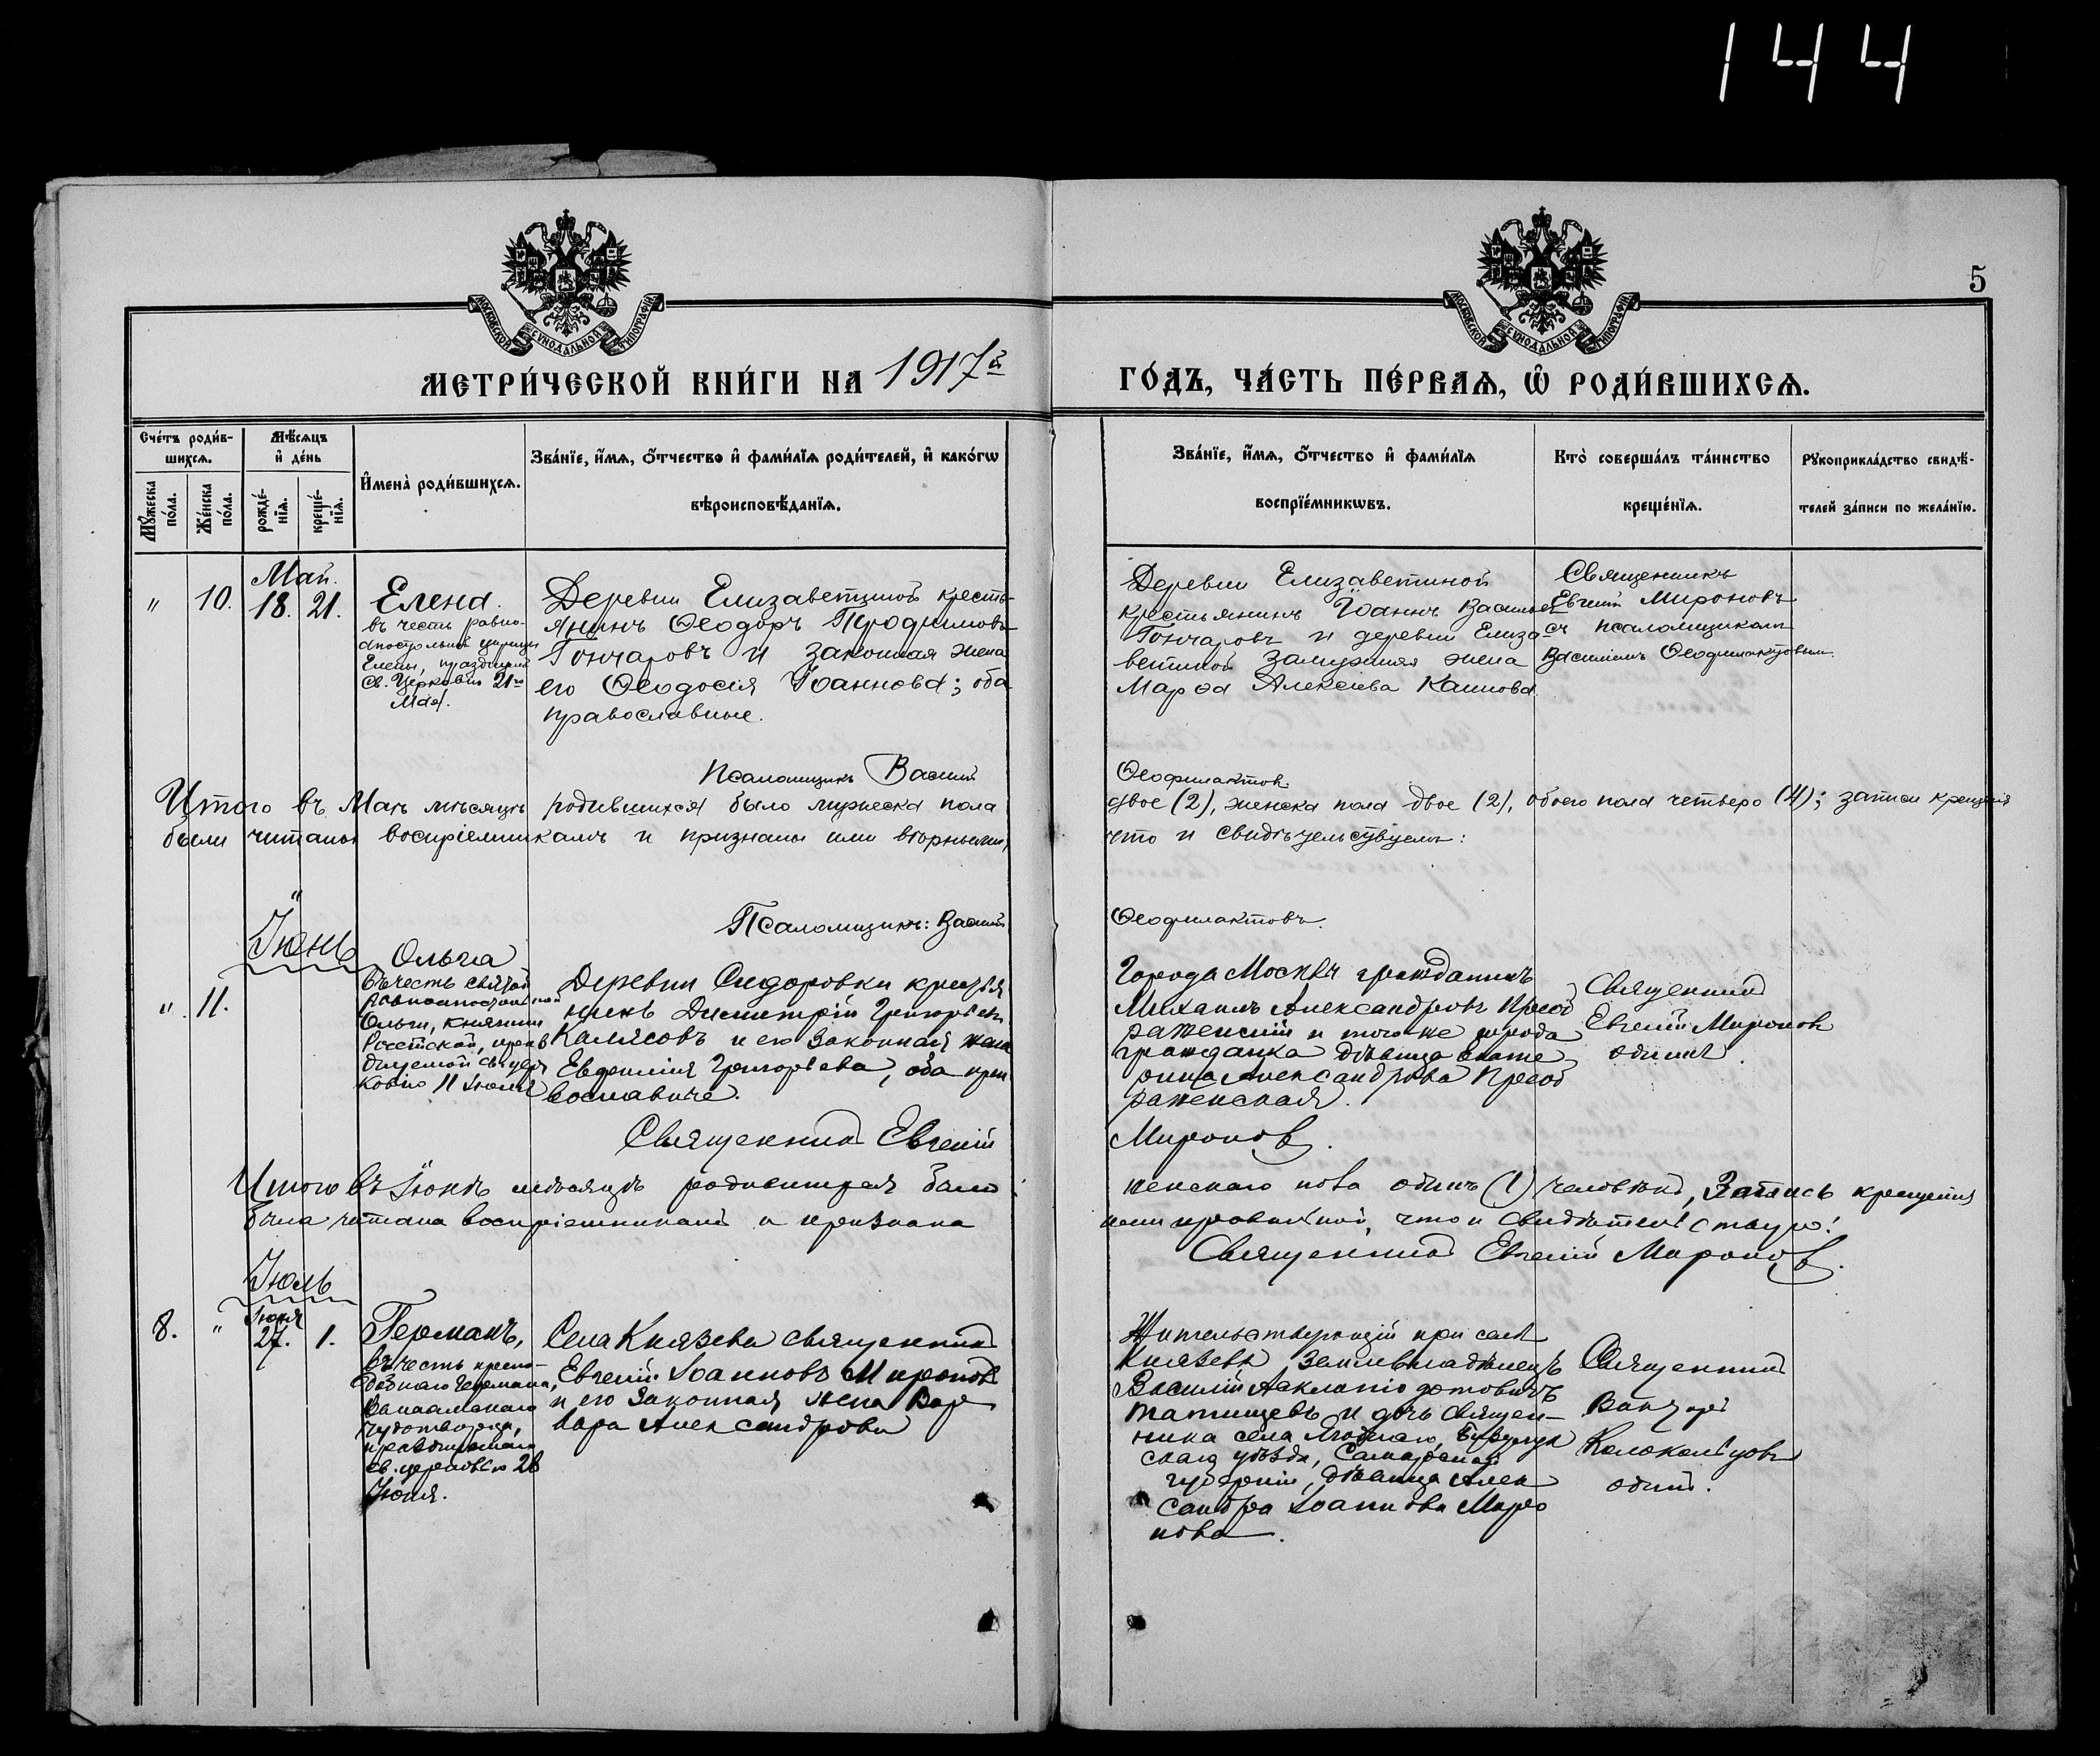 144
5
МОСКОВСКОЙ СѴНОДАЛЬНОЙ ТИПОГРАФІИ
МОСКОВСКОЙ СѴНОДАЛЬНОЙ ТИПОГРАФІИ
МЕТРИ́ЧЕСКОЙ КНИ́ГИ НА 1917й
ГО́ДЪ, ЧА́СТЬ ПЕ́РВАѦ, Ѡ҆ РОДИ́ВШИХСѦ.
Сче́тъ роди́в-
шихсѧ.
Мꙋ́жеска
по́ла.
Же́нска
по́ла.
Мѣ́сѧцъ
и҆ де́нь
рожде́-
нїѧ.
креще́-
нїѧ.
И҆мена̀ роди́вшихсѧ.
Зва́нїе, и҆́мѧ, ѻ҆́тчество и҆ фами́лїѧ роди́телей, и҆ како́гѡ
вѣроисповѣ́данїѧ.
Зва́нїе, и҆́мѧ, ѻ҆́тчество и҆ фами́лїѧ
воспрїе́мникѡвъ.
Кто̀ соверша́лъ та́инство
креще́нїѧ.
Рꙋкоприкла́дство свидѣ́-
телей за́писи по жела́нїю.
Май.
" 10. 18. 21.
Елена.
въ честь равно-
апостольной царицы
Елены, празднуемой
Св. Церковію 21го
Мая.
Деревни Елизаветиной кресть-
янинъ Ѳеодоръ Трофимовъ
Гончаровъ и законная жена
его Ѳеодосія Іоаннова; оба
православные.
Деревни Елизаветиной
крестьянинъ Іоаннъ Васильев
Гончаровъ и деревни Елиза-
ветиной замужняя жена
Марѳа Алексіева
Священникъ
Евгеній Мироновъ
съ псаломщикомъ
Василіемъ Ѳеофилактовымъ.
Псаломщикъ Василій
Ѳеофилактовъ.
Итого въ Маѣ мѣсяцѣ родившихся было мужеска пола
двое (2), женска пола двое (2), обоего пола четверо (4); записи крещенія
были читаны воспріемникамъ и признаны ими вѣрными,
что и свидѣтельствуемъ:
Псаломщикъ: Василій
Ѳеофилактовъ.
Іюнь
" 11.
Ольга
въ честь святой
равноапостольной
Ольги, княгини
Россійской, празд
нуемой св. цер
ковію 11 Іюля
Деревни Сидоровки крестья
нинъ Димитрій Григорьевъ
и его законная жена
Евѳимія Григорьева, оба пра
вославные.
Города Москвы гражданинъ
Михаилъ Александровъ Преоб
раженскій и того же города
гражданка дѣвица Екате
рина Александрова Преоб
раженская.
Священникъ
Евгеній Мироновъ
одинъ.
Священникъ Евгеній
Мироновъ.
Итого въ Іюнѣ мѣсяцѣ родившихся было
женскаго пола одинъ (1) человѣкъ, Запись крещенія
была читана воспріемникамъ и признана
ими правильной, что и свидѣтельствую:
Священникъ Евгеній Мироновъ.
Іюль
Іюня
8. " 27. 1.
Германъ,
въ честь препо-
добнаго Германа,
Валаамскаго
чудотворца,
празднуемаго
св. церковью 28
Іюня.
Села Князева священникъ
Евгеній Іоанновъ Мироновъ
и его законная жена Вар
вара Александрова
Жительствующій при селѣ
Князевѣ землевладѣлецъ
Василій Асклипіодотовичъ
Татищевъ и дочь священ-
ника села Бузулук
скаго уѣзда, Самарской
губерніи, дѣвица Алек
сандра Іоаннова Миро
нова.
Священникъ
Одинъ.